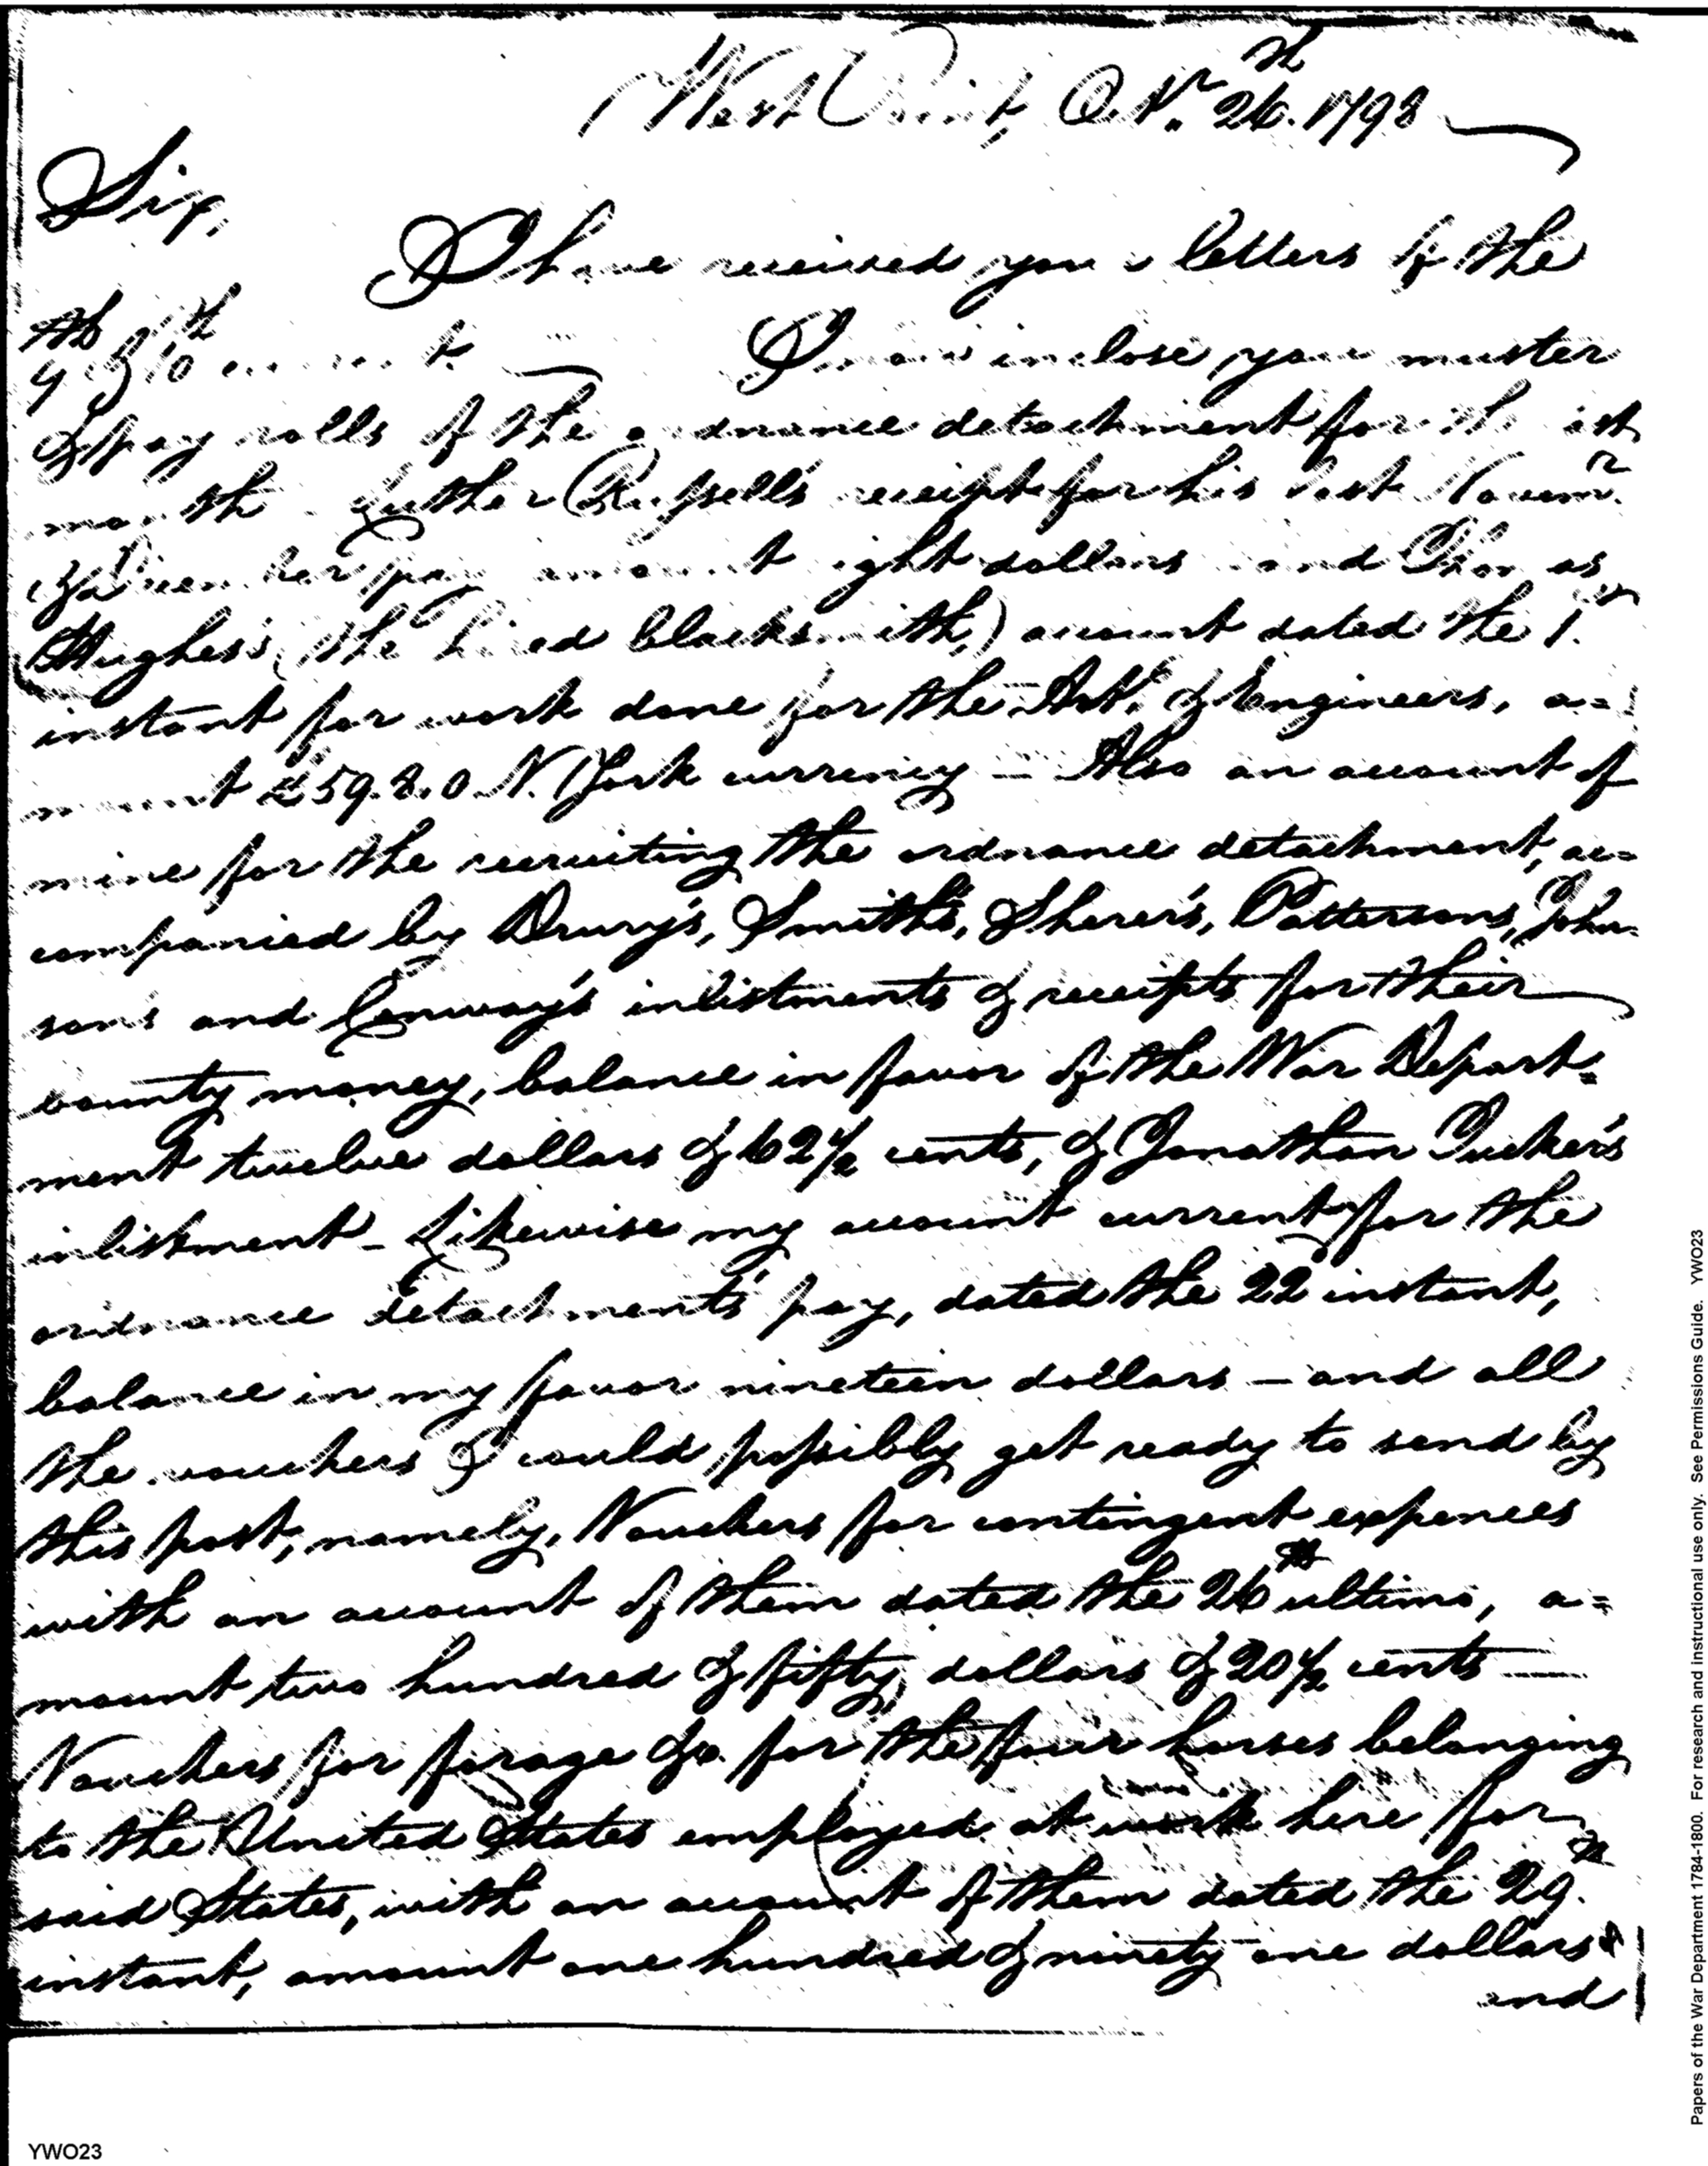 West Point, Octr. 26th. 1798
Sir,
I have received your letters of the
4th & 10th I now inclose you muster
& pay rolls of the ordnance detachment for
month Luther Russell's receipt for his last Novemr.
& December pay amount eight dollars and Thomas
Hughes's, (the hired blacksmith,) account dated the 1.
instant for work done for the Art. & Engineers, a=
mount £59.8.0 N. York currency – Also an account of
mine for the recruiting the ordnance detachment, ac=
companied by Drury's, Smith's, Sherer's, Pattersons, John=
son's and Conway's inlistments & receipts for their
bounty money, balance in favor of the War Depart=
ment twelve dollars & 62½ cents, & Jonathan Tucker's
inlistment – Likewise my account current for the
ordnance detachment's pay, dated the 22 instant,
balance in my favor nineteen dollars – and all
the vouchers I could possibly get ready to send by
this post, namely, Vouchers for contingent expences
with an account of them dated the 26th ultimo, a=
mount two hundred & fifty dollars & 20½ cents —
Vouchers for forage &c. for the four horses belonging
to the United States employed at work here for
said States, with an account of them dated the 29.th
instant, amount one hundred & ninety one dollars
and
Papers of the War Department 1784-1800. For research and instructional use only. See Permissions Guide. YWO23
YWO23